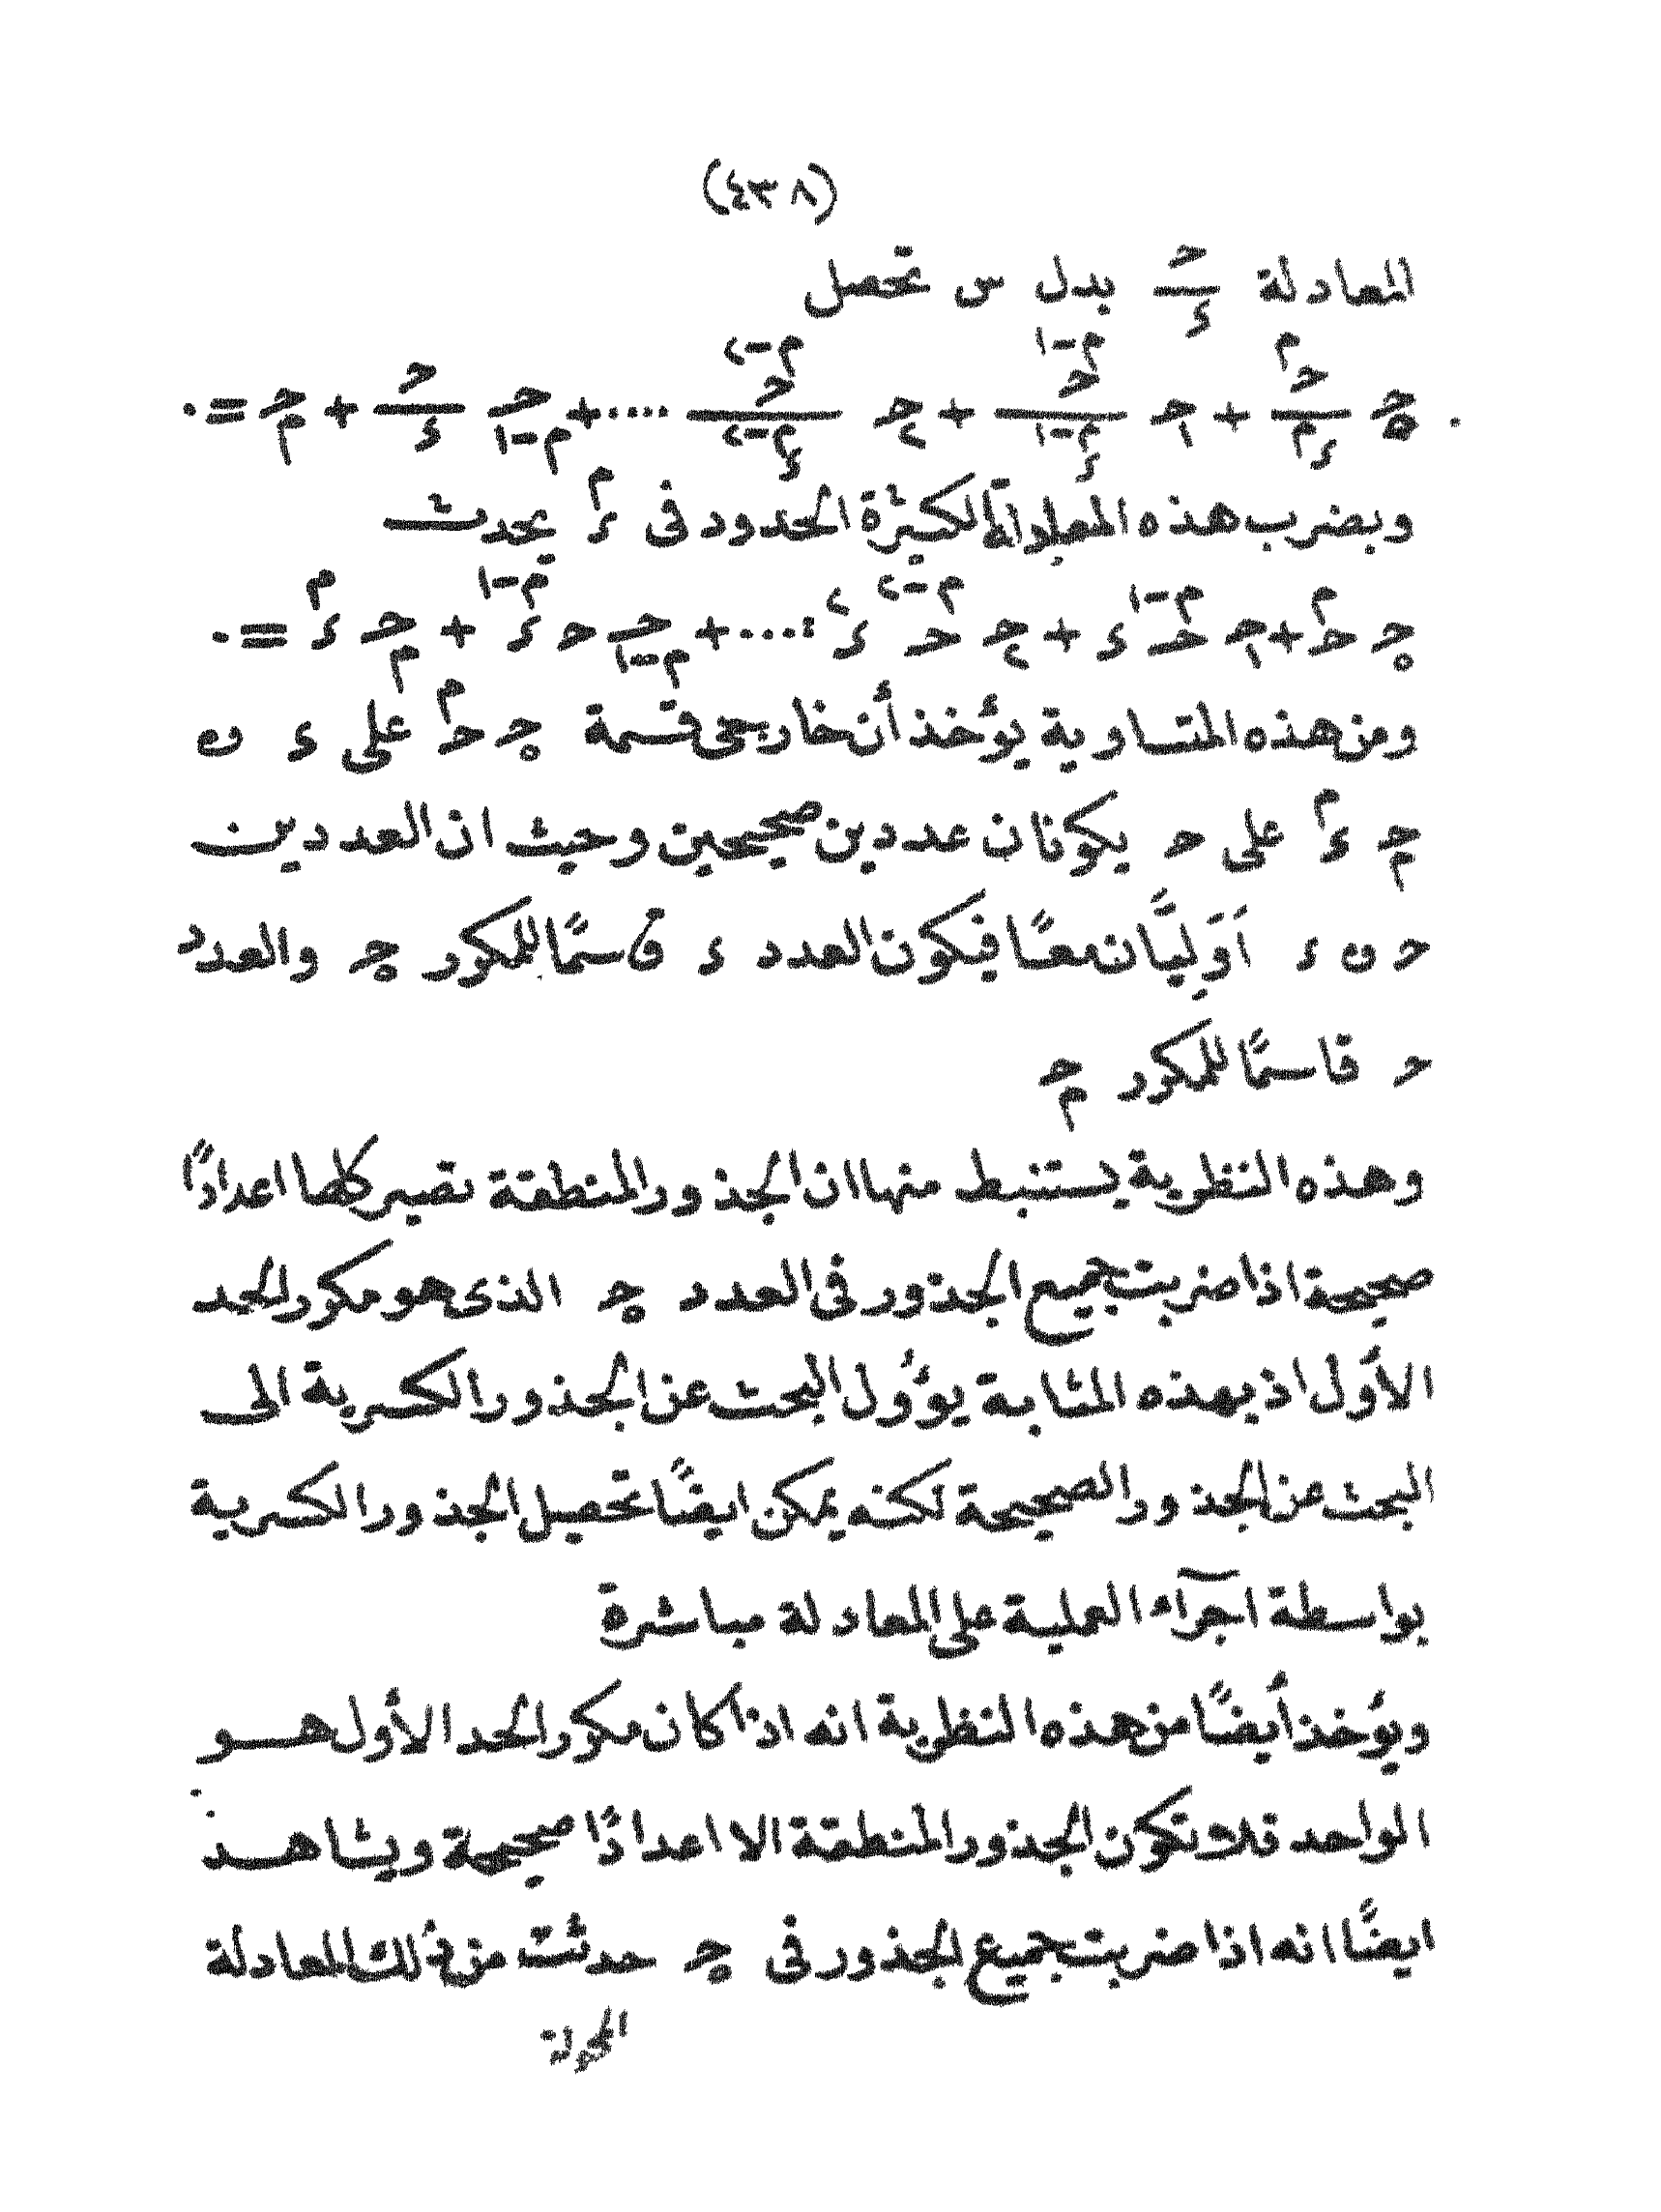 (٤٣٨)
المعادلة حـ/ء بدل س تحصل
جـ٠ حـ^م/ء^م + جـ١ حـ^(م-١)/ء^(م-١) + جـ٢ حـ^(م-٢)/ء^(م-٢) + .... + جـ(م-١) حـ/ء + جـم = ٠
وبضرب هذه المعادلة الكثيرة الحدود فى ء^م يحدث
جـ٠ حـ^م + جـ١ حـ^(م-١) ء + جـ٢ حـ^(م-٢) ء^٢ .... + جـ(م-١) حـ ء^(م-١) + جـم ء^م = ٠
ومن هذه المتساوية يؤخذ أن خارجى قسمة جـ٠ حـ^م على ء ن
جـم ء^م على حـ يكونان عددين صحيحين وحيث ان العددين
حـ ن ء اَوَلِيَّان معًا فيكون العدد ء قاسمًا للمكرر جـ٠ والعدد
حـ قاسمًا للمكرر جـم
وهذه النظرية يستنبط منها ان الجذور المنطقة تصير كلها اعدادًا
صحيحة اذا ضربت جميع الجذور فى العدد جـ٠ الذى هو مكرر الحد
الأول اذ بهذه المثابة يؤُول البحث عن الجذور الكسرية الى
البحث عن الجذور الصحيحة لكنه يمكن ايضًا تحصيل الجذور الكسرية
بواسطة اجرآء العملية على المعادلة مباشرة
ويؤخذ أيضًا من هذه النظرية انه اذا كان مكرر الحد الأول هو
الواحد فلا تكون الجذور المنطقة الا اعدادًا صحيحة ويشاهد
ايضًا انه اذا ضربت جميع الجذور فى جـ٠ حدثت من ذلك المعادلة